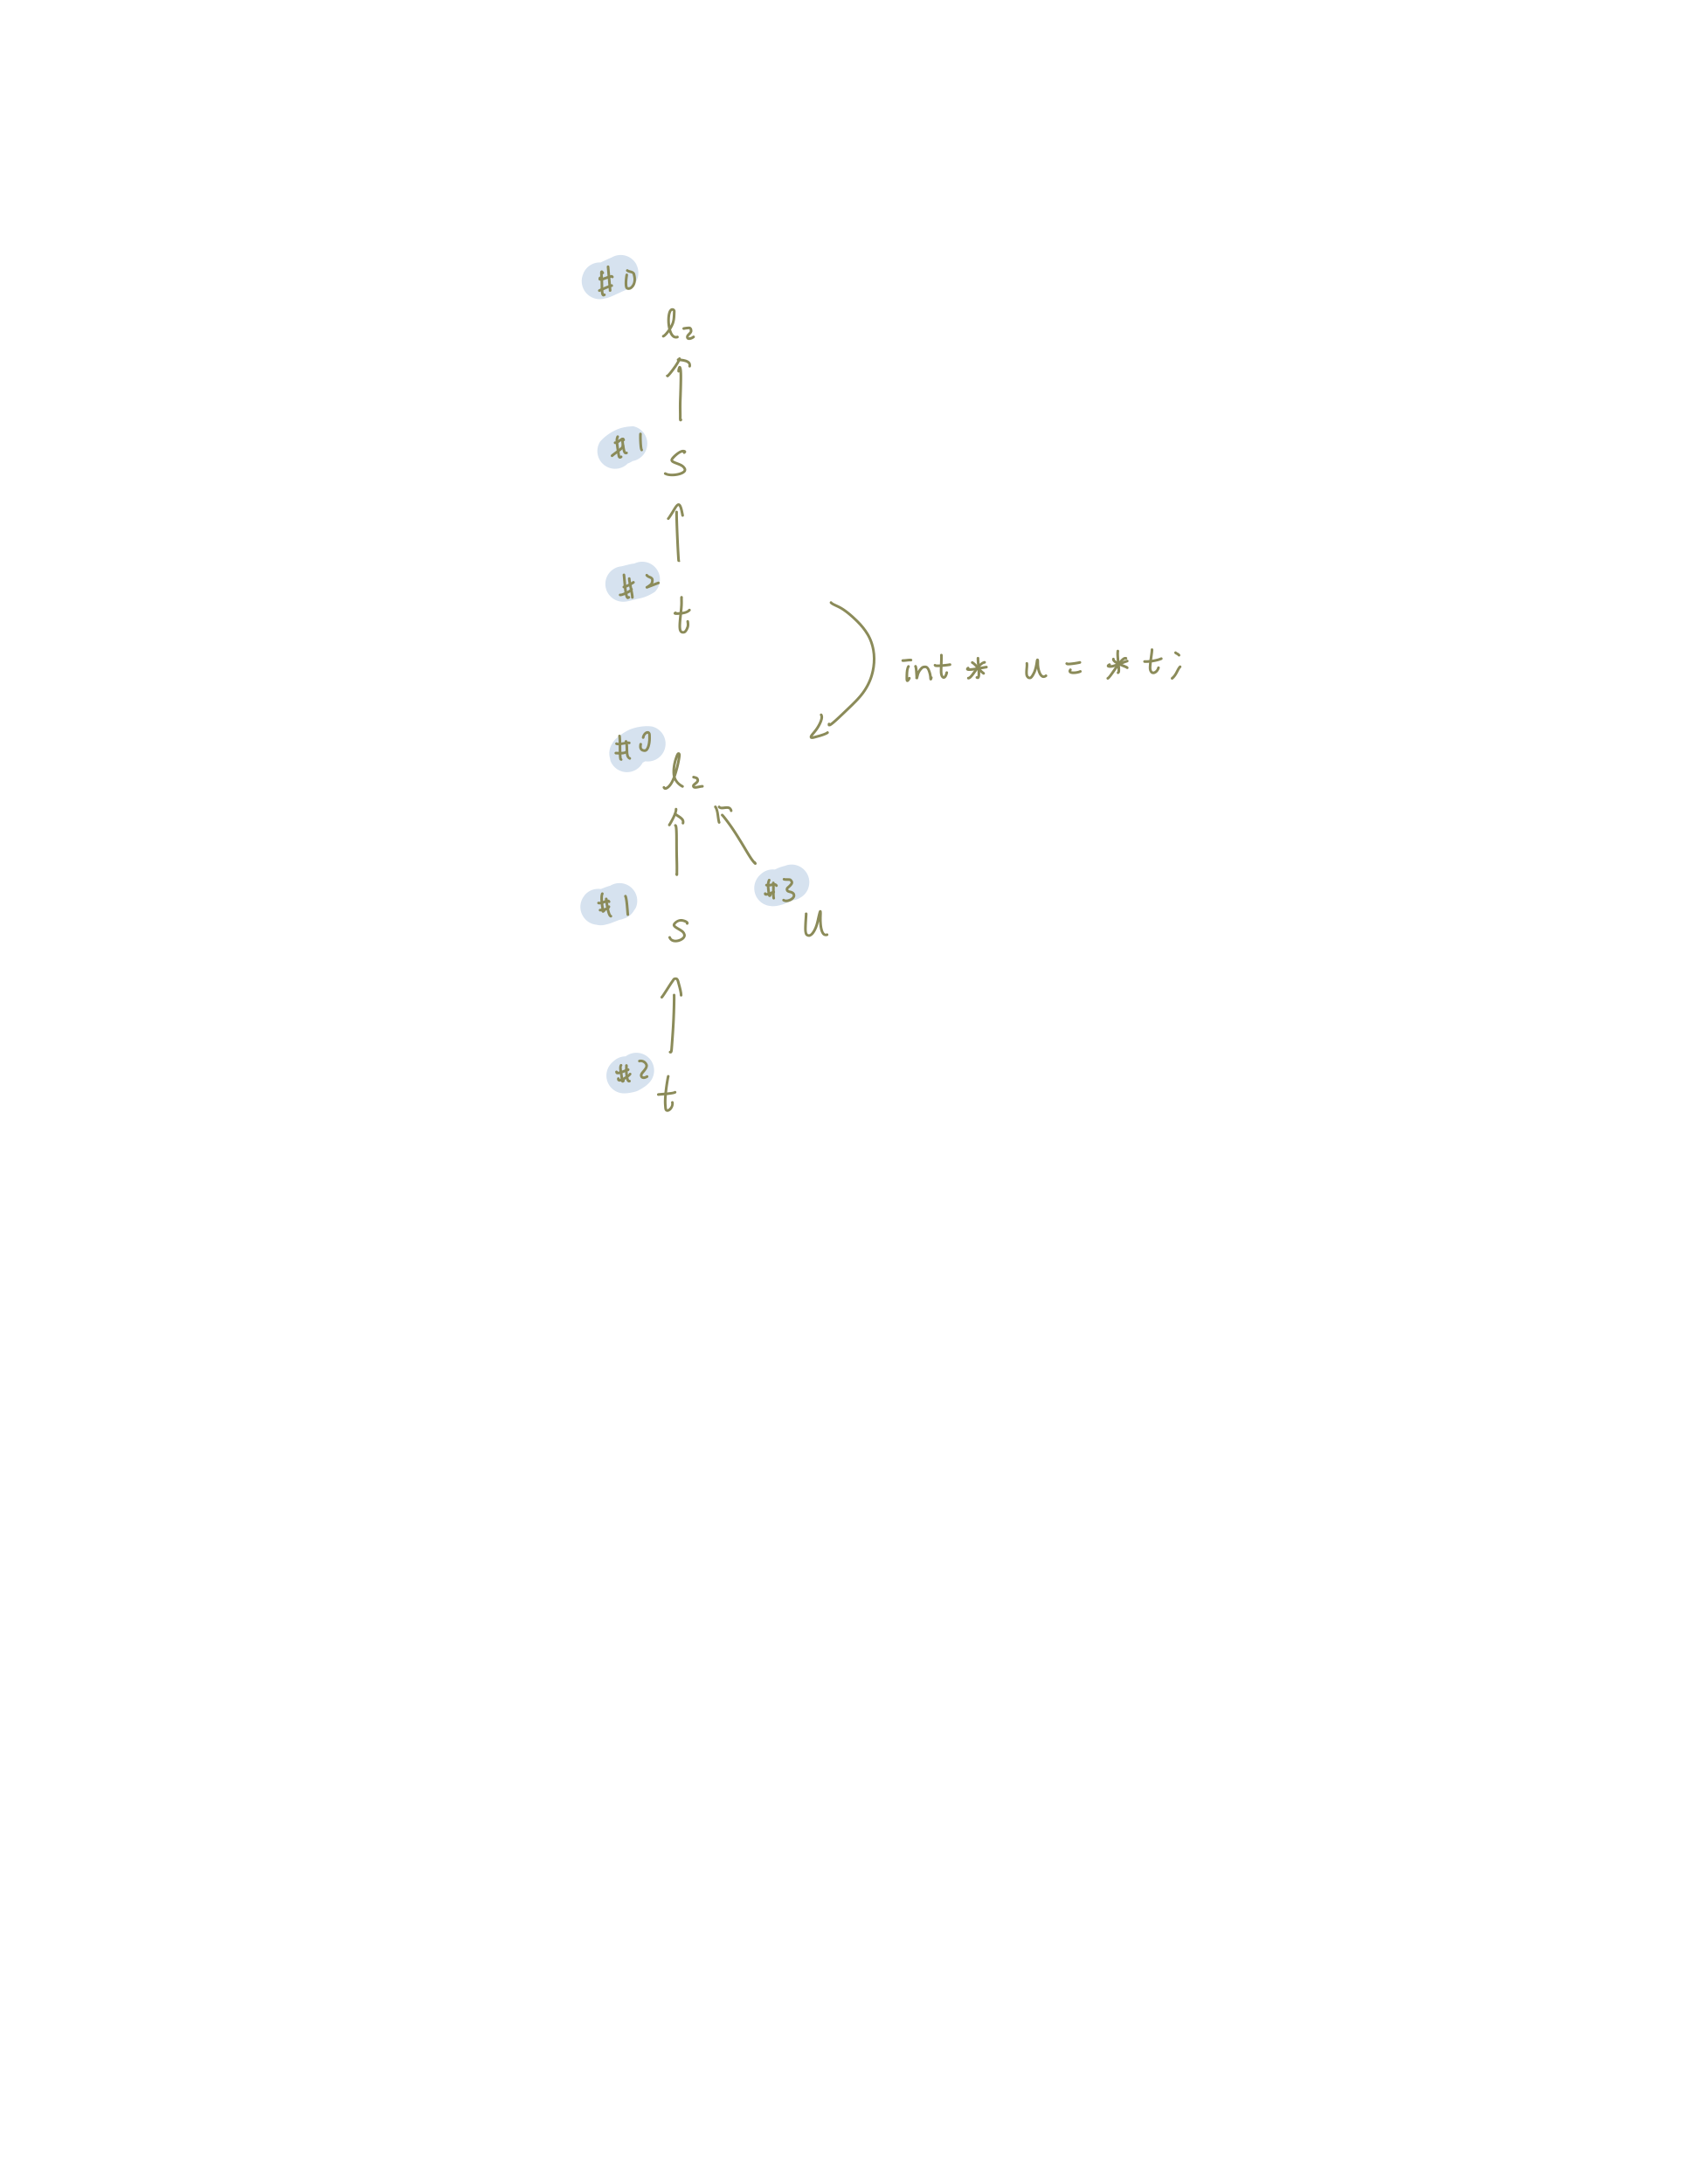 #0
l2
#1
s
#2
t
int* u = *t;
#0
l2
#3
#1
s
u
#2
t